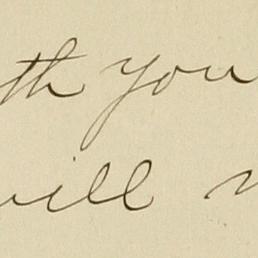 th you
will